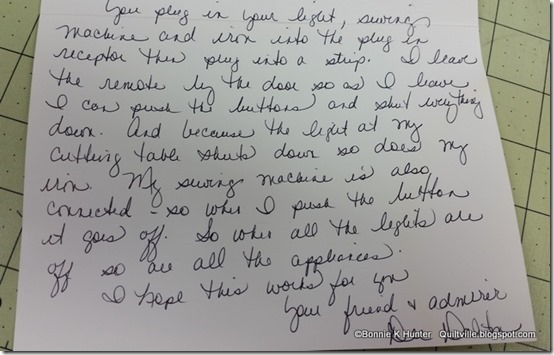 You plug in your light, sewing
machine and iron into the plug in
receptor then plug into a strip. I leave
the remote by the door so as I leave
I can push the buttons and shut everything
down. And because the light at my
cutting table shuts down so does my
iron. My sewing machine is also
connected - so when I push the button
it goes off. So when all the lights are
off so are all the appliances.
I hope this works for you
Your friend & admirer
©Bonnie K Hunter Quiltville.blogspot.com